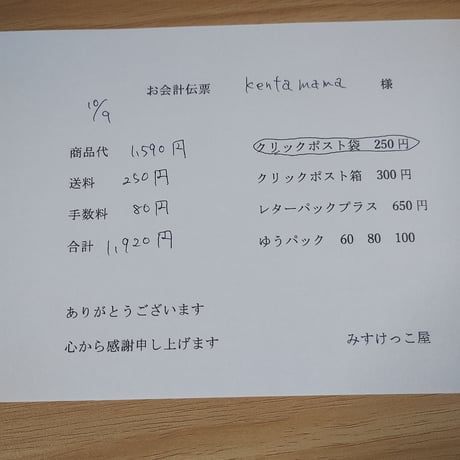 お会計伝票 kentamama 様
10/9
商品代 1,590円
送料 250円
手数料 80円
合計 1,920円
クリックポスト袋 250円
クリックポスト箱 300円
レターパックプラス 650円
ゆうパック 60 80 100
ありがとうございます
心から感謝申し上げます
みすけっこ屋